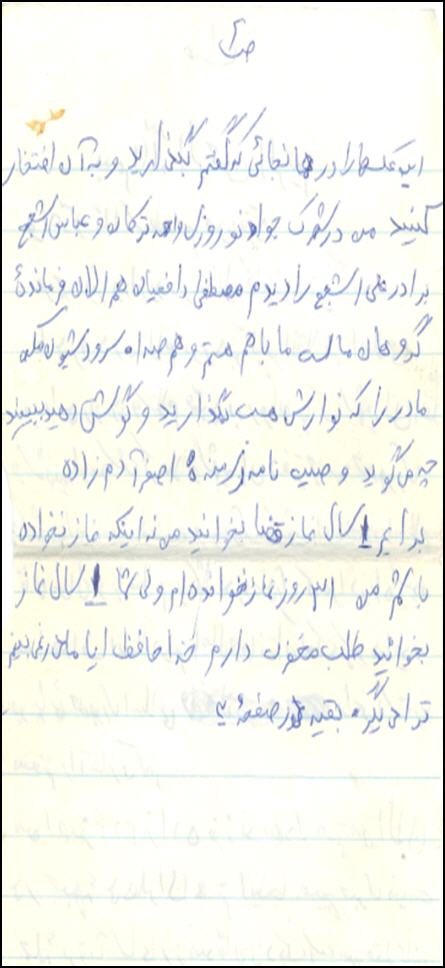 ص۲
این عکسها را در همانجائی که گفتم بگذارید و به آن افتخار
کنید من در شهرک جواد نوروزی و ترکان و عباس اشجع
برادر علی اشجع را دیدم مصطفی رافعیان هم الان فرماندهٔ
گروهان ماست ما با هم هستیم و هم صدا سرود
مادر را که نوارش هست بگذارید و گوش دهید ببینید
چه می گوید وصیت نامه اصغر آدم زاده
برایم ۱ سال نماز قضا بخوانید من نه اینکه نماز نخوانده
باشم من ۳۱ روز نماز نخوانده ام ولی شما ۱ سال نماز
بخوانید طلب مغفرت دارم خدا حافظ
بقیه در صفحهٔ ۳